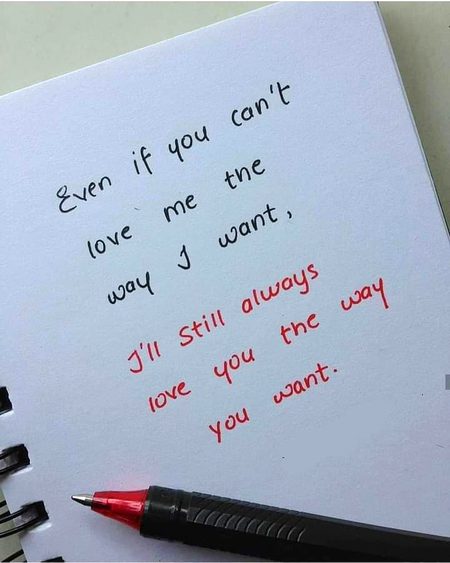 Even if you can't
love me the
way I want,
I'll still always
love you the way
you want.